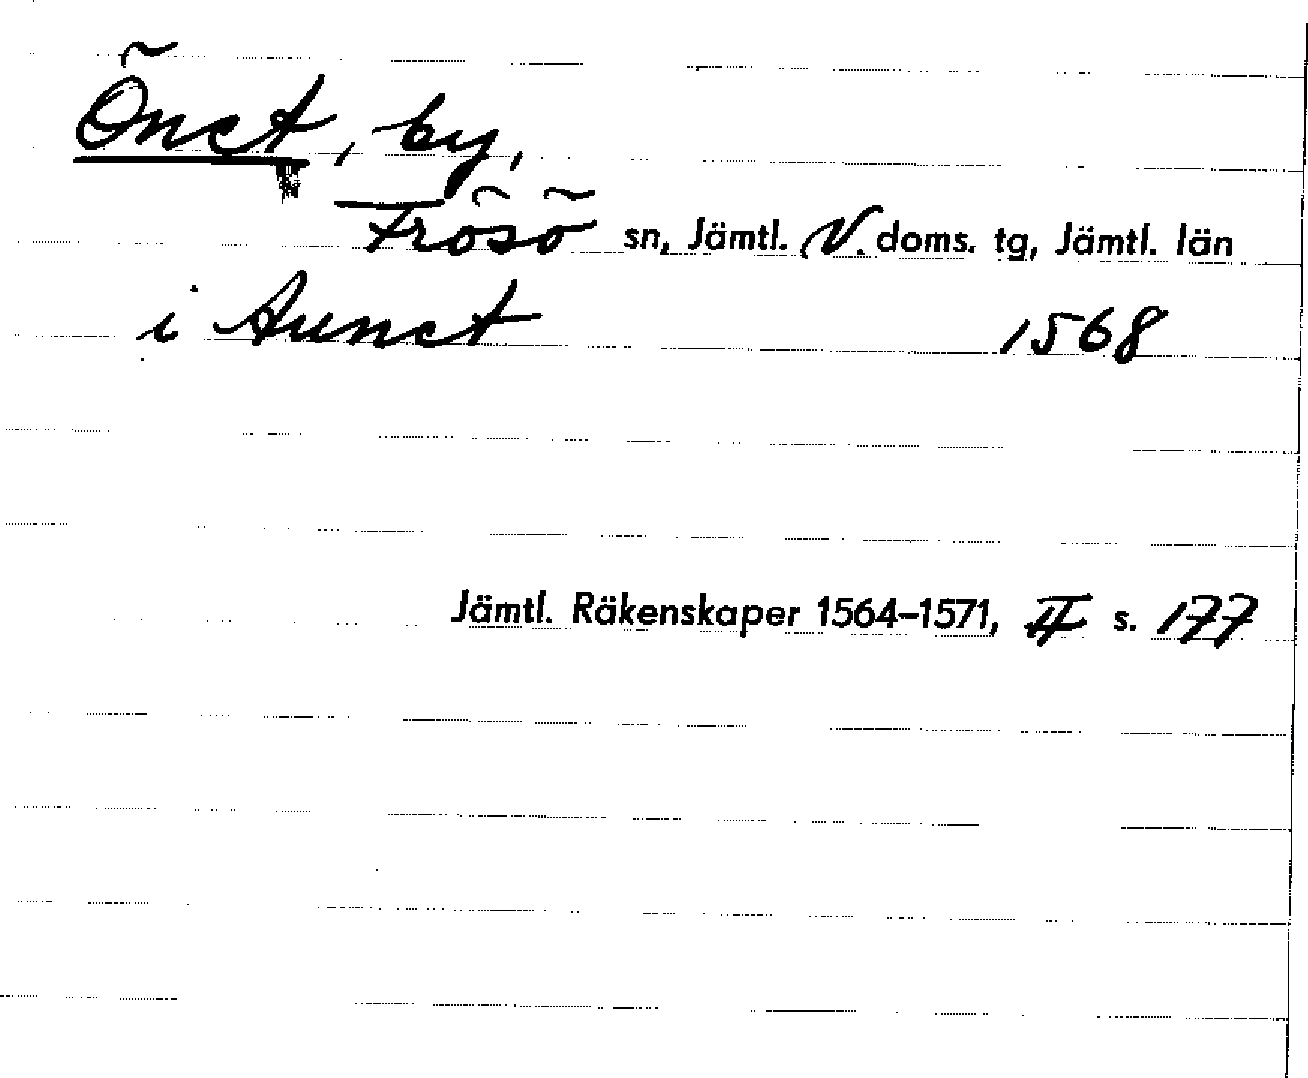 Önet, by,
Frösö sn, Jämtl. V. doms. tg, Jämtl. län
i Aunet 1568
Jämtl. Räkenskaper 1564–1571, II s. 177